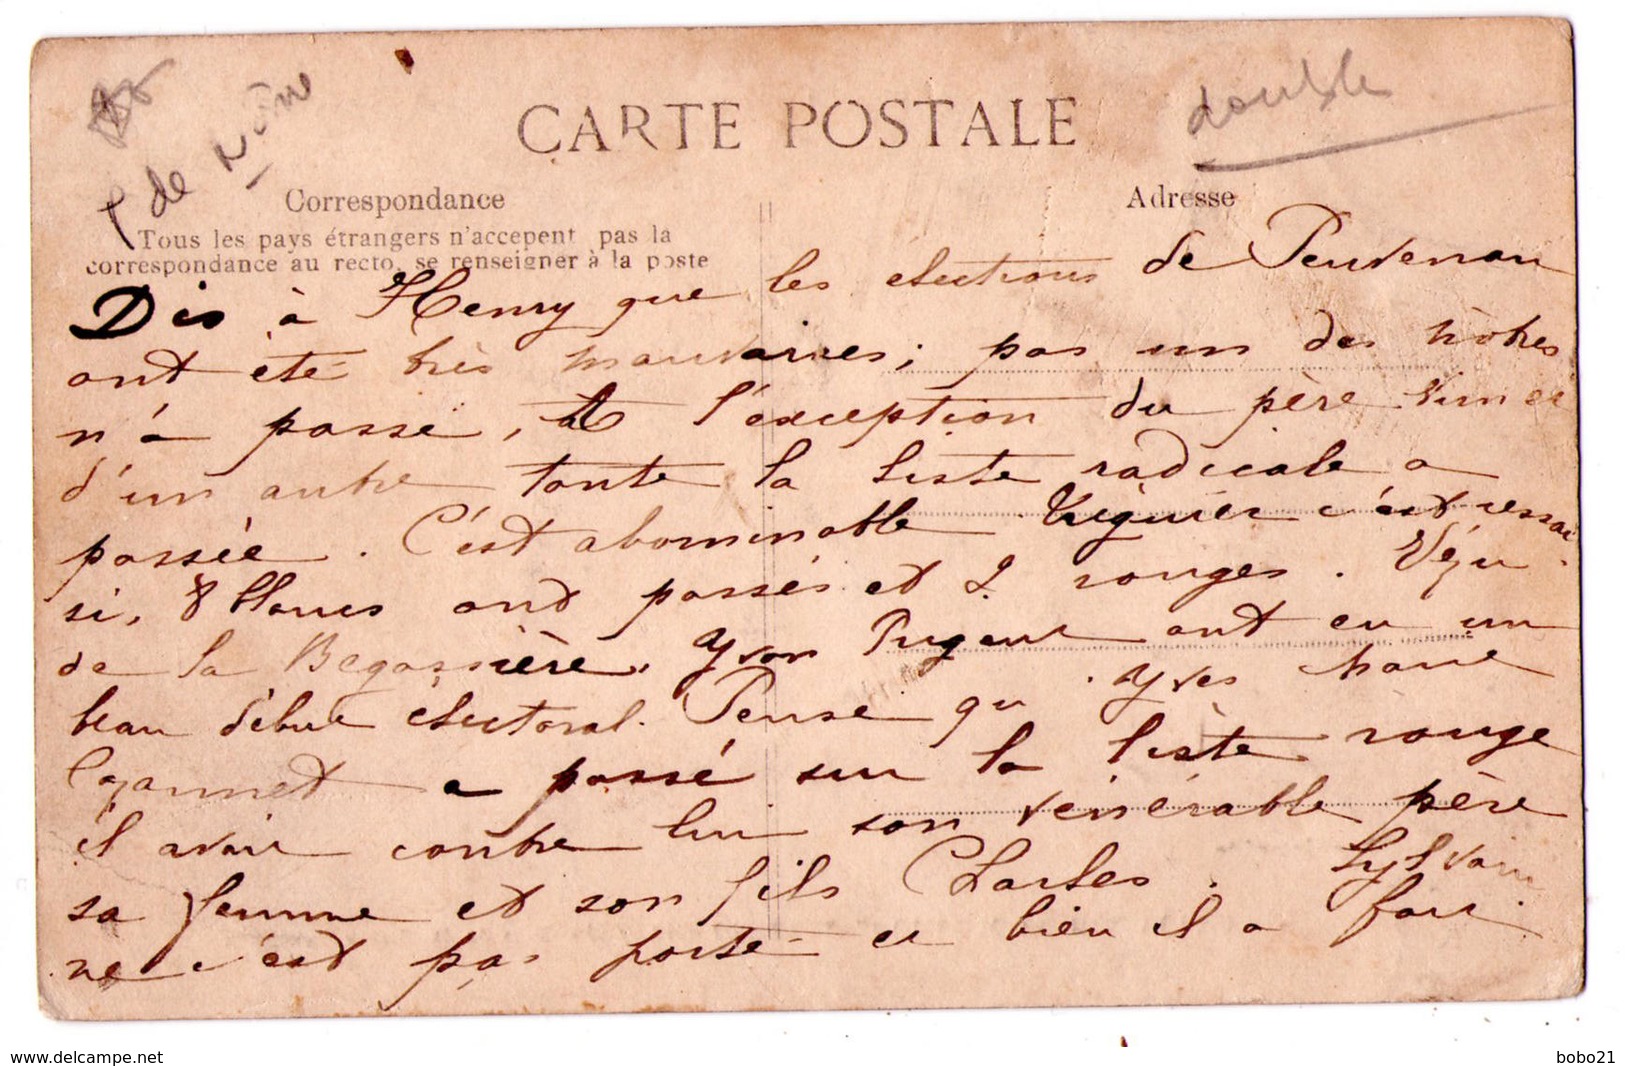 double
de
CARTE POSTALE
Correspondance
Adresse
Tous les pays étrangers n'accepent pas la
correspondance au recto, se renseigner à la poste
Dis à Henry que les élections de Penvenan
ont été très mauvaises; pas un des nôtres
n'a passé, à l'exception du père
d'un autre toute la liste radicale a
passée. C'est abominable Tréguier c'est ressai
si, 8 blancs ont passés et 2 rouges.
de la Begassière, Yvon Pugent ont eu un
beau début électoral. Pense qu'Yves Marie
a passé sur la liste rouge
il avait contre lui son vénérable père
sa femme et son fils Charles. Sylvain
ne c'est pas porté et bien il a fait
delcampe.net
bobo21